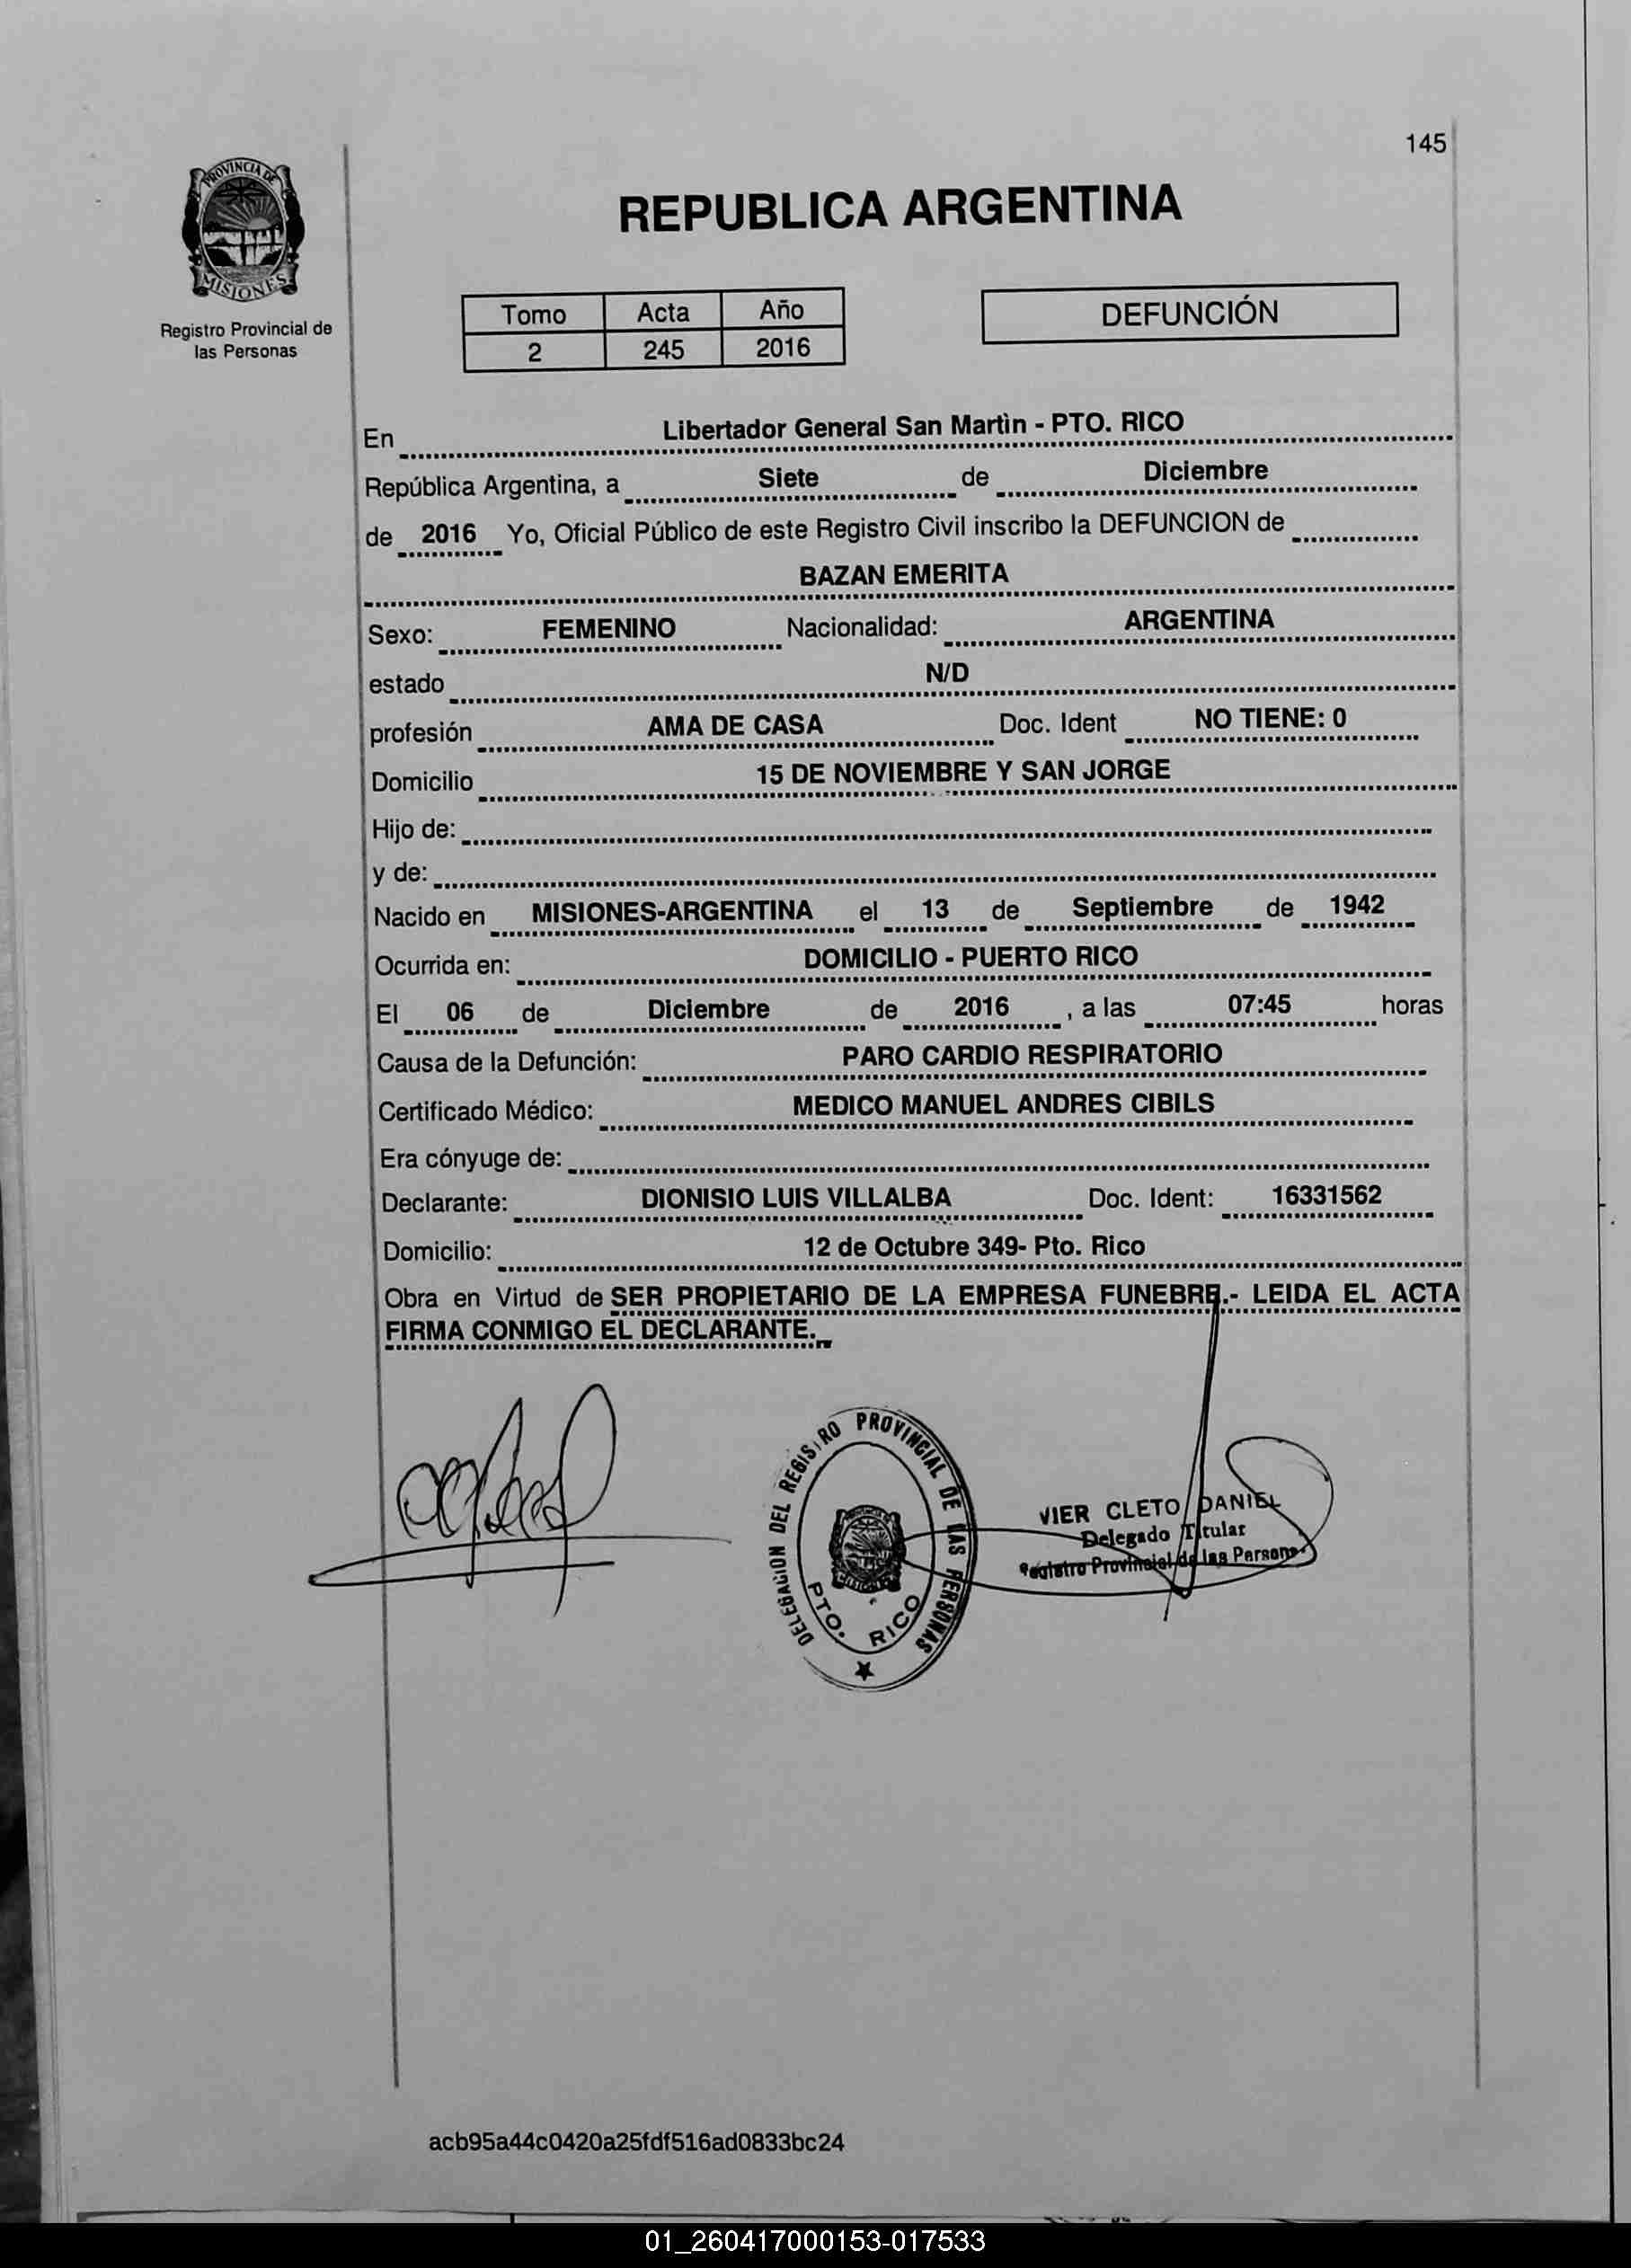 145
PROVINCIA DE
MISIONES
Registro Provincial de
las Personas
REPUBLICA ARGENTINA
Tomo Acta Año
2 245 2016
DEFUNCIÓN
En Libertador General San Martìn - PTO. RICO
República Argentina, a Siete de Diciembre
de 2016 Yo, Oficial Público de este Registro Civil inscribo la DEFUNCION de
BAZAN EMERITA
Sexo: FEMENINO Nacionalidad: ARGENTINA
estado N/D
profesión AMA DE CASA Doc. Ident NO TIENE: 0
Domicilio 15 DE NOVIEMBRE Y SAN JORGE
Hijo de:
y de:
Nacido en MISIONES-ARGENTINA el 13 de Septiembre de 1942
Ocurrida en: DOMICILIO - PUERTO RICO
El 06 de Diciembre de 2016 , a las 07:45 horas
Causa de la Defunción: PARO CARDIO RESPIRATORIO
Certificado Médico: MEDICO MANUEL ANDRES CIBILS
Era cónyuge de:
Declarante: DIONISIO LUIS VILLALBA Doc. Ident: 16331562
Domicilio: 12 de Octubre 349- Pto. Rico
Obra en Virtud de SER PROPIETARIO DE LA EMPRESA FUNEBRE.- LEIDA EL ACTA
FIRMA CONMIGO EL DECLARANTE.
DELEGACION DEL REGISTRO PROVINCIAL DE LAS PERSONAS
PTO. RICO
VIER CLETO DANIEL
Delegado Titular
Registro Provincial de las Personas
acb95a44c0420a25fdf516ad0833bc24
01_260417000153-017533